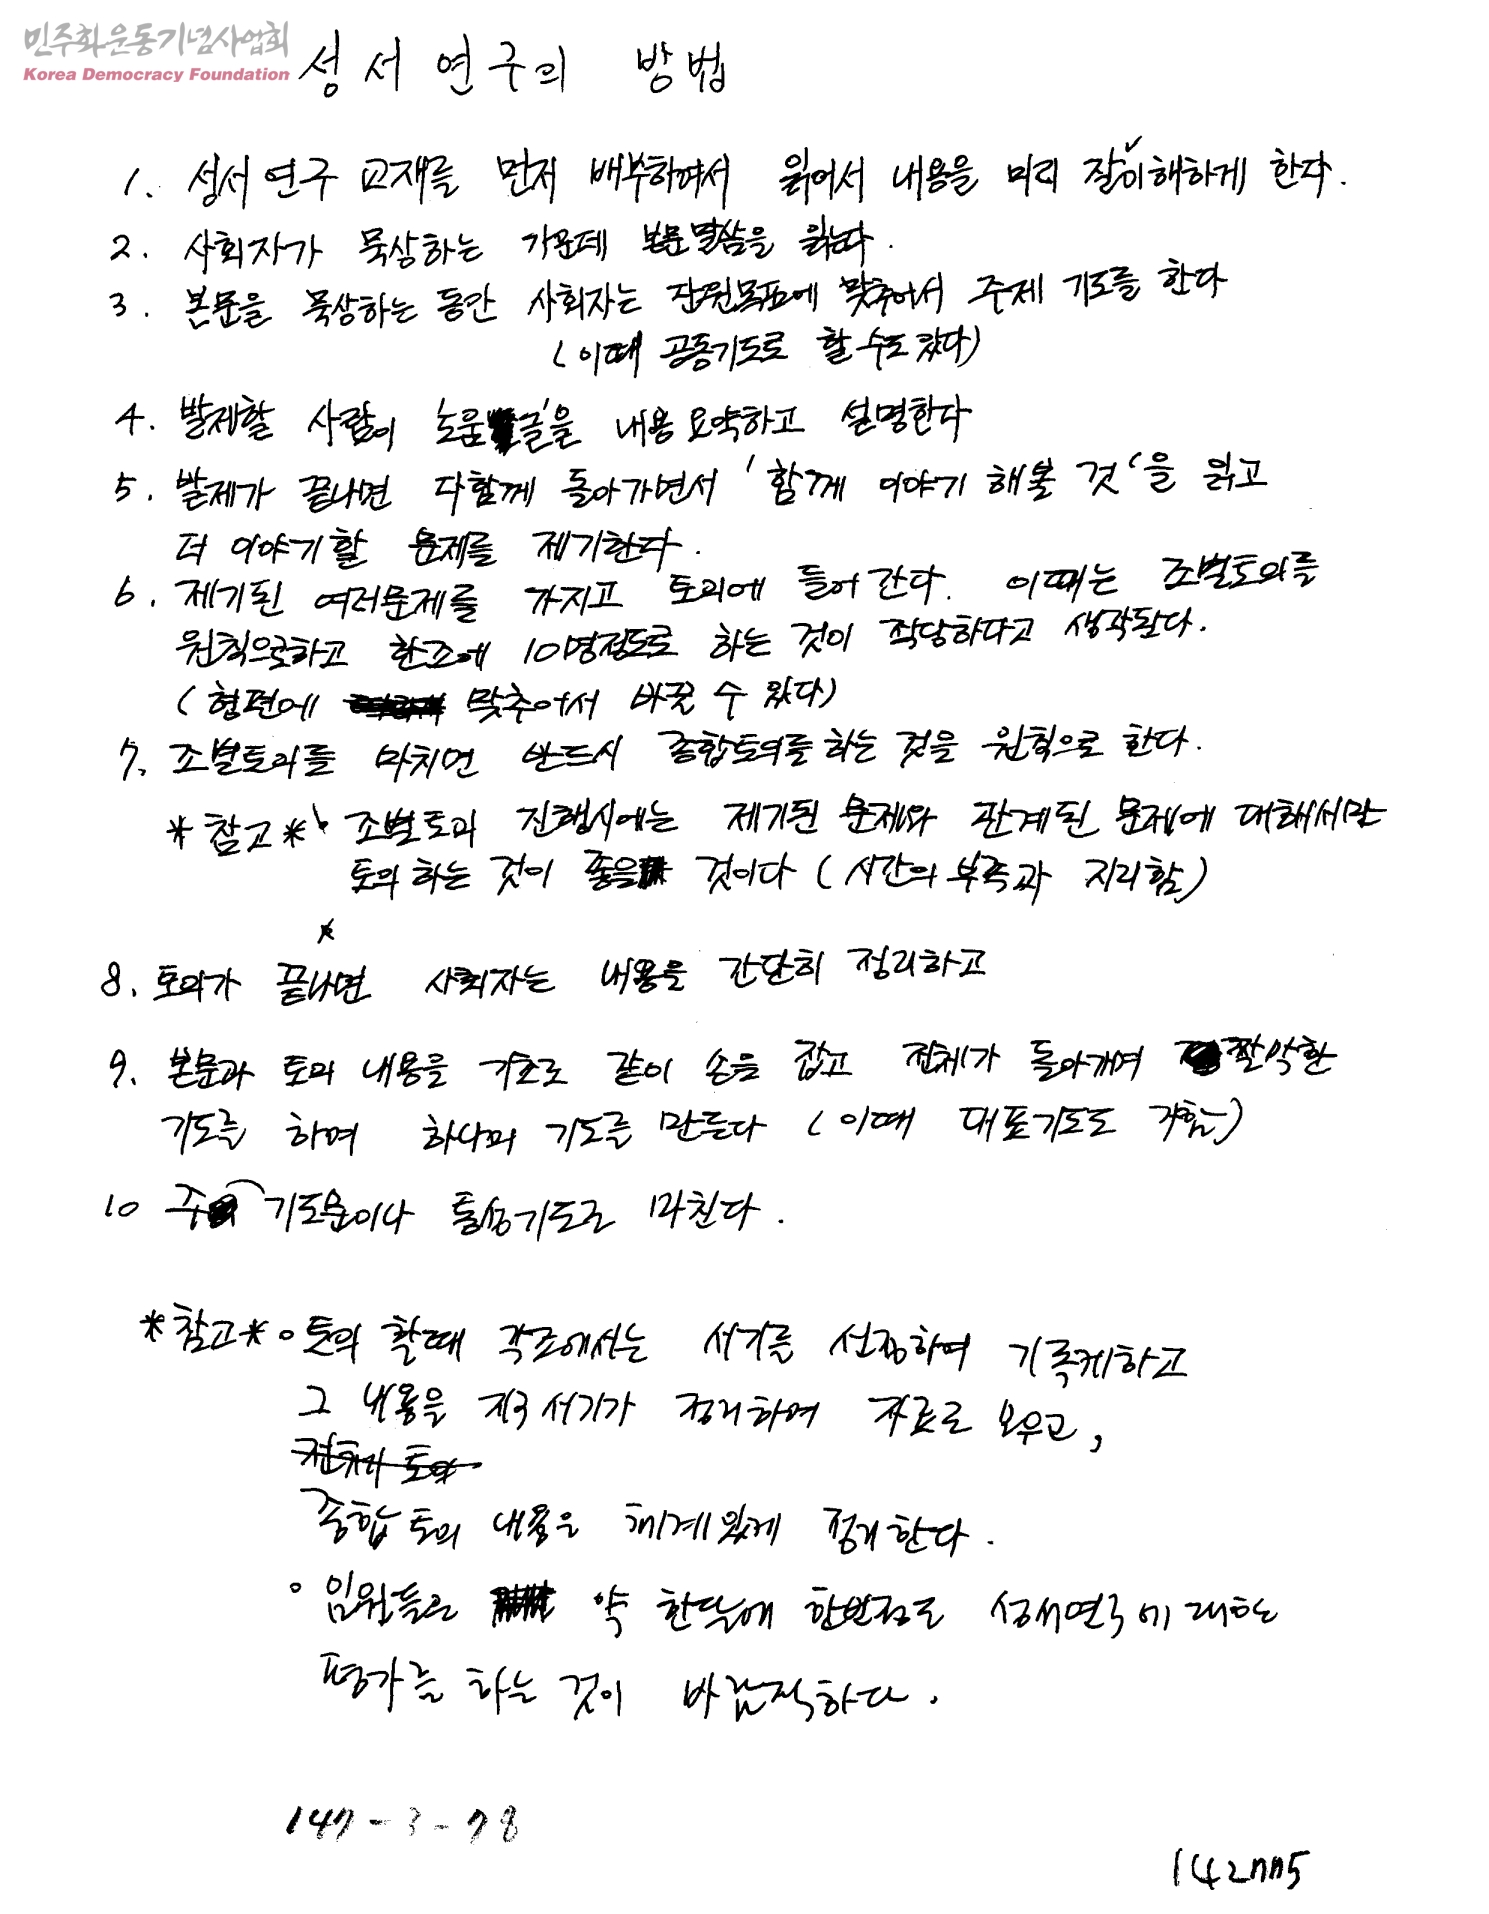 민주화운동기념사업회
Korea Democracy Foundation
성서 연구의 방법
1. 성서 연구 교재를 먼저 배부하여서 읽어서 내용을 미리 잘 이해하게 한다.
2. 사회자가 묵상하는 가운데 본문말씀을 읽는다.
3. 본문을 묵상하는 동안 사회자는 단원목표에 맞추어서 주제 기도를 한다
(이때 공동기도로 할 수도 있다)
4. 발제할 사람이 '도움글'을 내용 요약하고 설명한다
5. 발제가 끝나면 다함께 돌아가면서 '함께 이야기 해볼 것'을 읽고
더 이야기할 문제를 제기한다.
6. 제기된 여러문제를 가지고 토의에 들어간다. 이때는 조별토의를
원칙으로하고 한조에 10명정도로 하는 것이 적당하다고 생각된다.
(형편에 맞추어서 바꿀 수 있다)
7. 조별토의를 마치면 반드시 종합토의를 하는 것을 원칙으로 한다.
*참고* 조별토의 진행시에는 제기된 문제와 관계된 문제에 대해서만
토의 하는 것이 좋을 것이다 (시간의 부족과 지리함)
8. 토의가 끝나면 사회자는 내용을 간단히 정리하고
9. 본문과 토의 내용을 기초로 같이 손을 잡고 전체가 돌아가며 짤막한
기도를 하며 하나의 기도를 만든다 (이때 대표기도도 가함)
10 주기도문이나 통성기도로 마친다.
*참고* ∘ 토의 할때 각조에서는 서기를 선정하여 기록케하고
그 내용을 지구서기가 정리하여 자료로 모우고,
전체 토의
종합 토의 내용을 체계있게 정리한다.
∘ 임원들은 약 한달에 한번정도 성서연구에 대한
평가를 하는 것이 바람직하다.
147-3-78